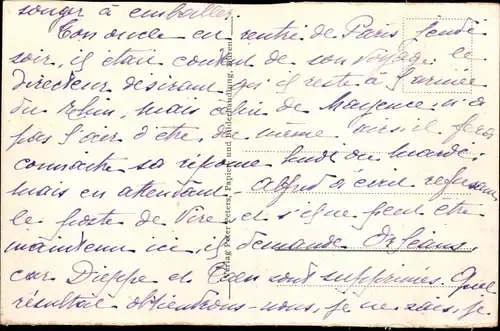 songer à emballer.
Ton oncle en rentré de Paris jeudi
soir, il était content de son voyage. le
directeur désirant qu'il reste à l'armée
du Rhin, mais celui de Mayence n'a
pas l'air d'être de même avis. il fera
connaître sa réponse lundi ou mardi.
mais en attendant Alfred d'écrit refusant
le poste de Vire et s'il ne peut être
maintenu ici, il demande Orléans.
car Dieppe et Caen sont supprimés. Quel
résultat obtiendrons-nous, je ne sais, je
Verlag Peter Peters, Papier- und Bilderhandlung, Düren